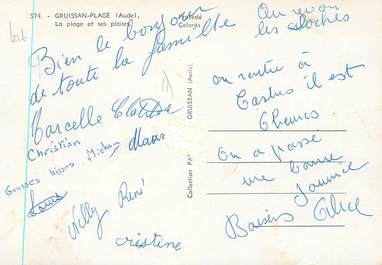 574. - GRUISSAN-PLAGE (Aude).
La plage et ses plaisirs
Procédé
Colorés
Bien le bonjour
de toute la famille
Marcelle Claude
Christian Michou
Grosses bisses
Nelly René
cristine
GRUISSAN (Aude)
Collection PAF
Au revoir
les cloches
on rentre à
Castres il est
6 heures
On a passé
une bonne
journée
Baisers Alice